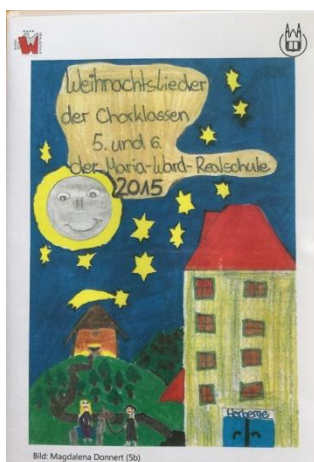 Weihnachtslieder
der Chorklassen
5. und 6.
der Maria-Ward-Realschule
2015
Herberge
Bild: Magdalena Donnert (5b)